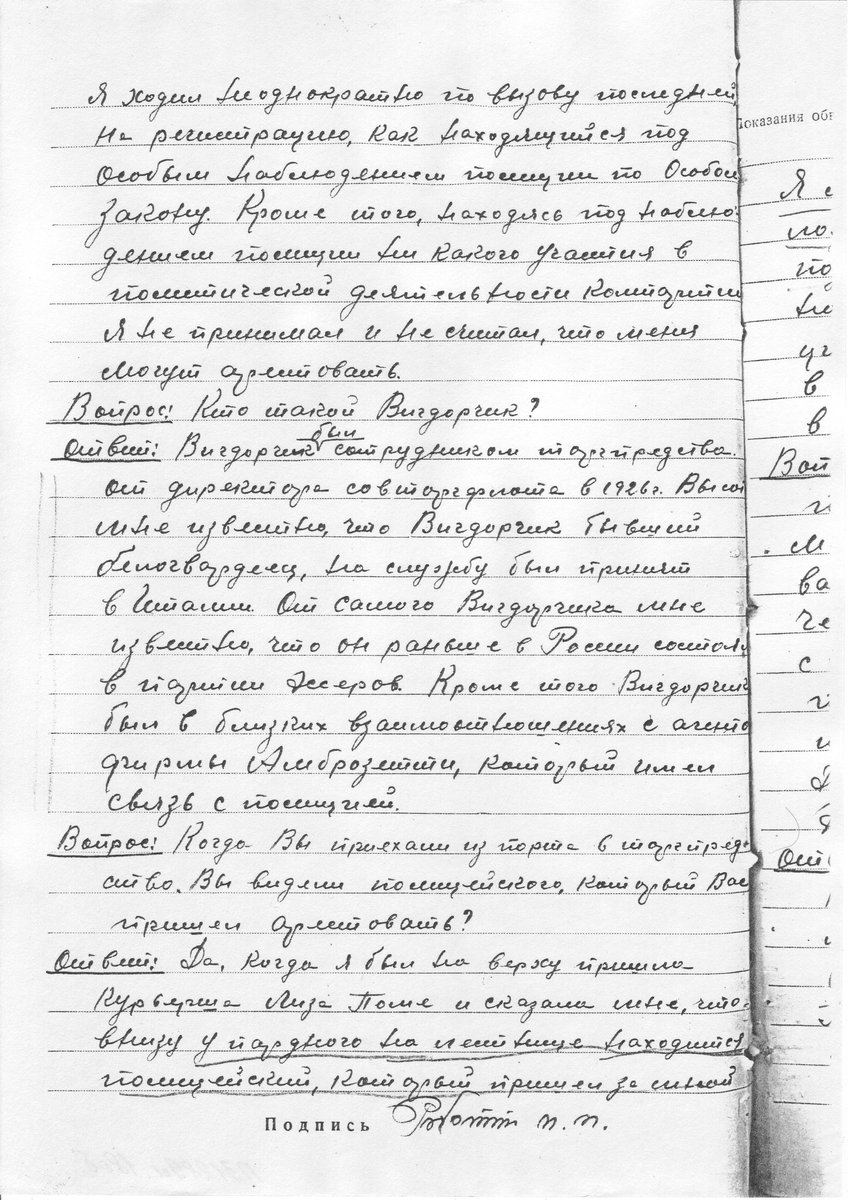 Я ходил неоднократно по вызову последней
на регистрацию, как находящийся под
особым наблюдением полиции по Особом
закону. Кроме того, находясь под наблю-
дением полиции ни какого участия в
политической деятельности Компартии
я не принимал и не считал, что меня
могут арестовать.
Вопрос: Кто такой Вигдорчик?
Ответ: Вигдорчик был сотрудником торгпредства.
от директора совторгфлота в 1926 г.
мне известно, что Вигдорчик бывший
белогвардеец, на службу был принят
в Италии. От самого Вигдорчика мне
известно, что он раньше в России состоял
в партии эсеров. Кроме того Вигдорчик
был в близких взаимоотношениях с агенто
фирмы Амброзетти, который имел
связь с полицией.
Вопрос: Когда Вы приехали из порта в торгпред-
ство. Вы видели полицейского, который Вас
пришел арестовать?
Ответ: Да, когда я был на верху пришла
курьерша Лиза Поме и сказала мне, что
внизу у пардного на лестнице находится
полицейский, который пришел за мной
Подпись Роботти п. п.
Показания обв
Я с
ло
по
ни
уч
в
в
Воп
м
ва
че
с
Отв